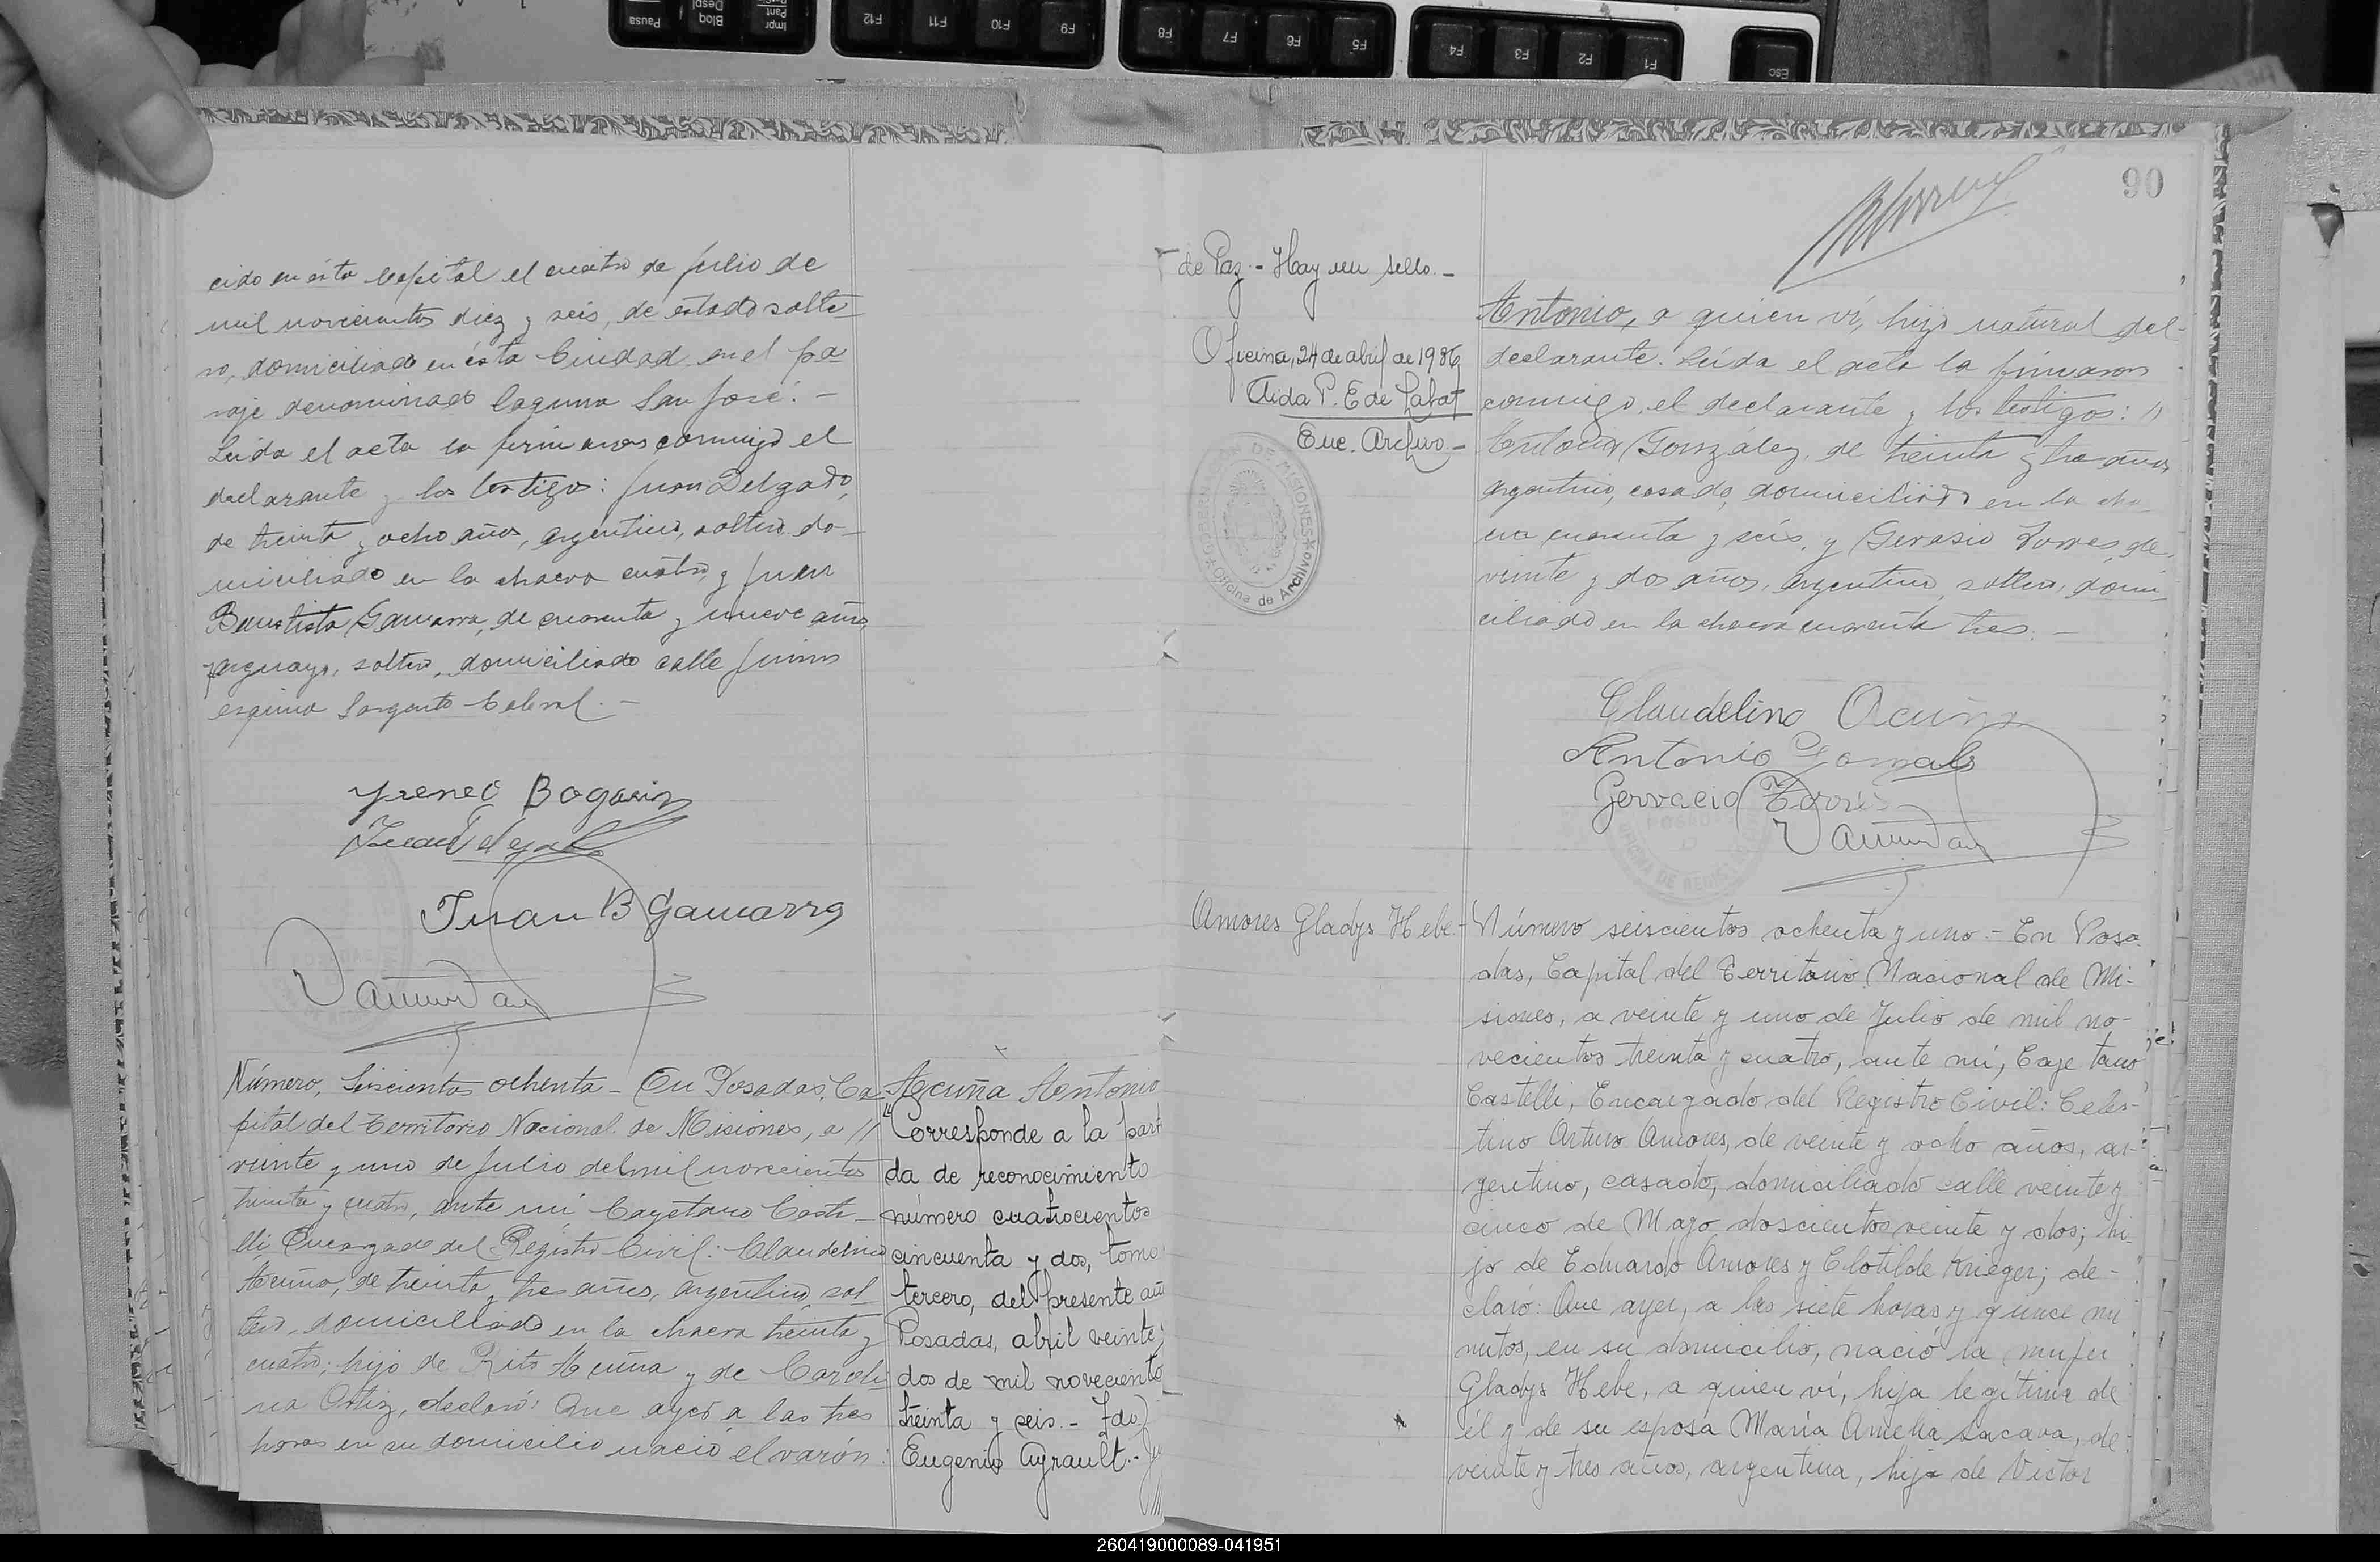 cido en ésta Capital el cuatro de Julio de
mil novecientos diez y seis, de estado solte-
ro, domiciliado en ésta Ciudad en el pa-
raje denominado laguna San José. -
Leída el acta la firmaron conmigo el
declarante y los testigos: Juan Delgado,
de treinta y ocho años, argentino, soltero, do-
miciliado en la chacra cuatro, y Juan
Bautista Gamarra, de cuarenta y nueve años,
paraguayo, soltero, domiciliado calle Junin
esquina Sargento Cabral. -
Yreneo Bogarin
Juan Delgado
Juan B Gamarra
Número, Seiscientos ochenta - En Posadas, Ca-
pital del Territorio Nacional de Misiones, a //
veinte y uno de Julio de mil novecientos
treinta y cuatro, ante mí Cayetano Caste-
lli Encargado del Registro Civil: Claudelino
Acuña, de treinta y tres años, argentino, sol-
tero, domiciliado en la chacra treinta y
cuatro; hijo de Rito Acuña y de Caroli-
na Ortiz, declaró: Que ayer a las tres
horas en su domicilio nació el varón:
Acuña Antonio
"Corresponde a la parti
da de reconocimiento
número cuatrocientos
cincuenta y dos, tomo
tercero, del presente año
Posadas, abril veinte y
dos de mil noveciento
treinta y seis.- Fdo)
Eugenio Ayrault.- Ju
90
de Paz.- Hay un sello.-
Oficina, 24 de abril de 1986
Aida P. E de Labat
Enc. Archivo.-
DE MISIONES
Oficina de Archivo
Antonio, a quien ví, hijo natural del
declarante. Leída el acta la firmaron
conmigo, el declarante y los testigos: //
Antonio González, de treinta y tres años
argentino, casado, domiciliado en la cha-
cra cuarenta y seis, y Gervasio Torres, de
veinte y dos años, argentino, soltero, domi-
ciliado en la chacra cuarenta tres. -
Claudelino Acuña
Antonio Gonzales
Gervacio Torres
Amores Gladys Hebe-
Número seiscientos ochenta y uno.- En Posa-
das, Capital del Territorio Nacional de Mi-
siones, a veinte y uno de Julio de mil no-
vecientos treinta y cuatro, ante mí, Cayetano
Castelli, Encargado del Registro Civil: Celes-
tino Arturo Amores, de veinte y ocho años, ar-
gentino, casado, domiciliado calle veinte y
cinco de Mayo doscientos veinte y dos; hi-
jo de Eduardo Amores y Clotilde Krieger; de-
claró: Que ayer, a las siete horas y quince mi
nutos, en su domicilio, nació la mujer
Gladys Hebe, a quien ví, hija legítima de
él y de su esposa María Amelia Lacava, de
veinte y tres años, argentina, hija de Victor
Pausa
Bloq
Despl
Impr
Pant
F12
F11
F10
F9
F8
F7
F6
F5
F4
F3
F2
F1
Esc
260419000089-041951